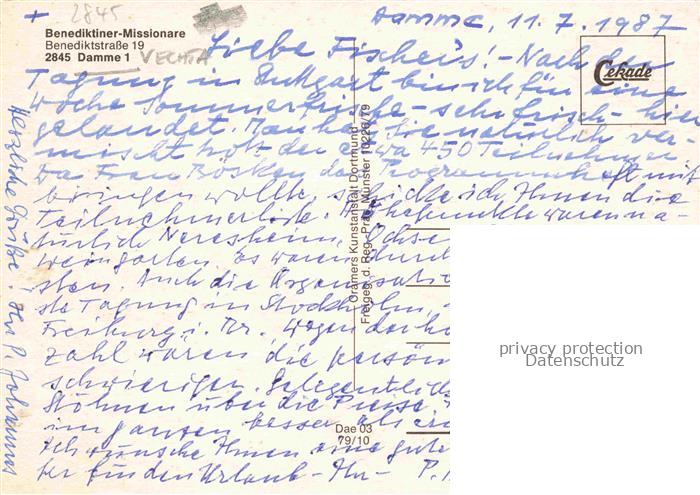 2845
Benediktiner-Missionare
Benediktstraße 19
2845 Damme 1
VECHTA
Damme, 11.7.1987
Liebe Fischers! - Nach der
Tagung in Stuttgart bin ich für eine
Woche Sommerfrische - sehr frisch - hier
gelandet. Man hat Sie natürlich ver-
misst trotz der etwa 450 Teilnehmer
Da Frau das Programmheft mit
bringen wollte, schicke ich Ihnen die
Teilnehmerliste. Höhepunkte waren na-
türlich Neresheim, Ochse
Weingarten. Es waren durch
ten. Auch die Organisatio
ste Tagung in Stockholm,
Freiburg i. Br. Wegen der ho
zahl waren die persön
schwieriger. Gelegentlich
Stöhnen über die Preise.
im ganzen besser als er
Ich wünsche Ihnen eine gute
ter für den Urlaub - Ihr - P.
Herzliche Grüße! Ihr P. Johannes
Cramers Kunstanstalt Dortmund
Freigeg. d. Reg.-Präs. Münster 10226/79
Dae 03
79/10
Cekade
privacy protection
Datenschutz